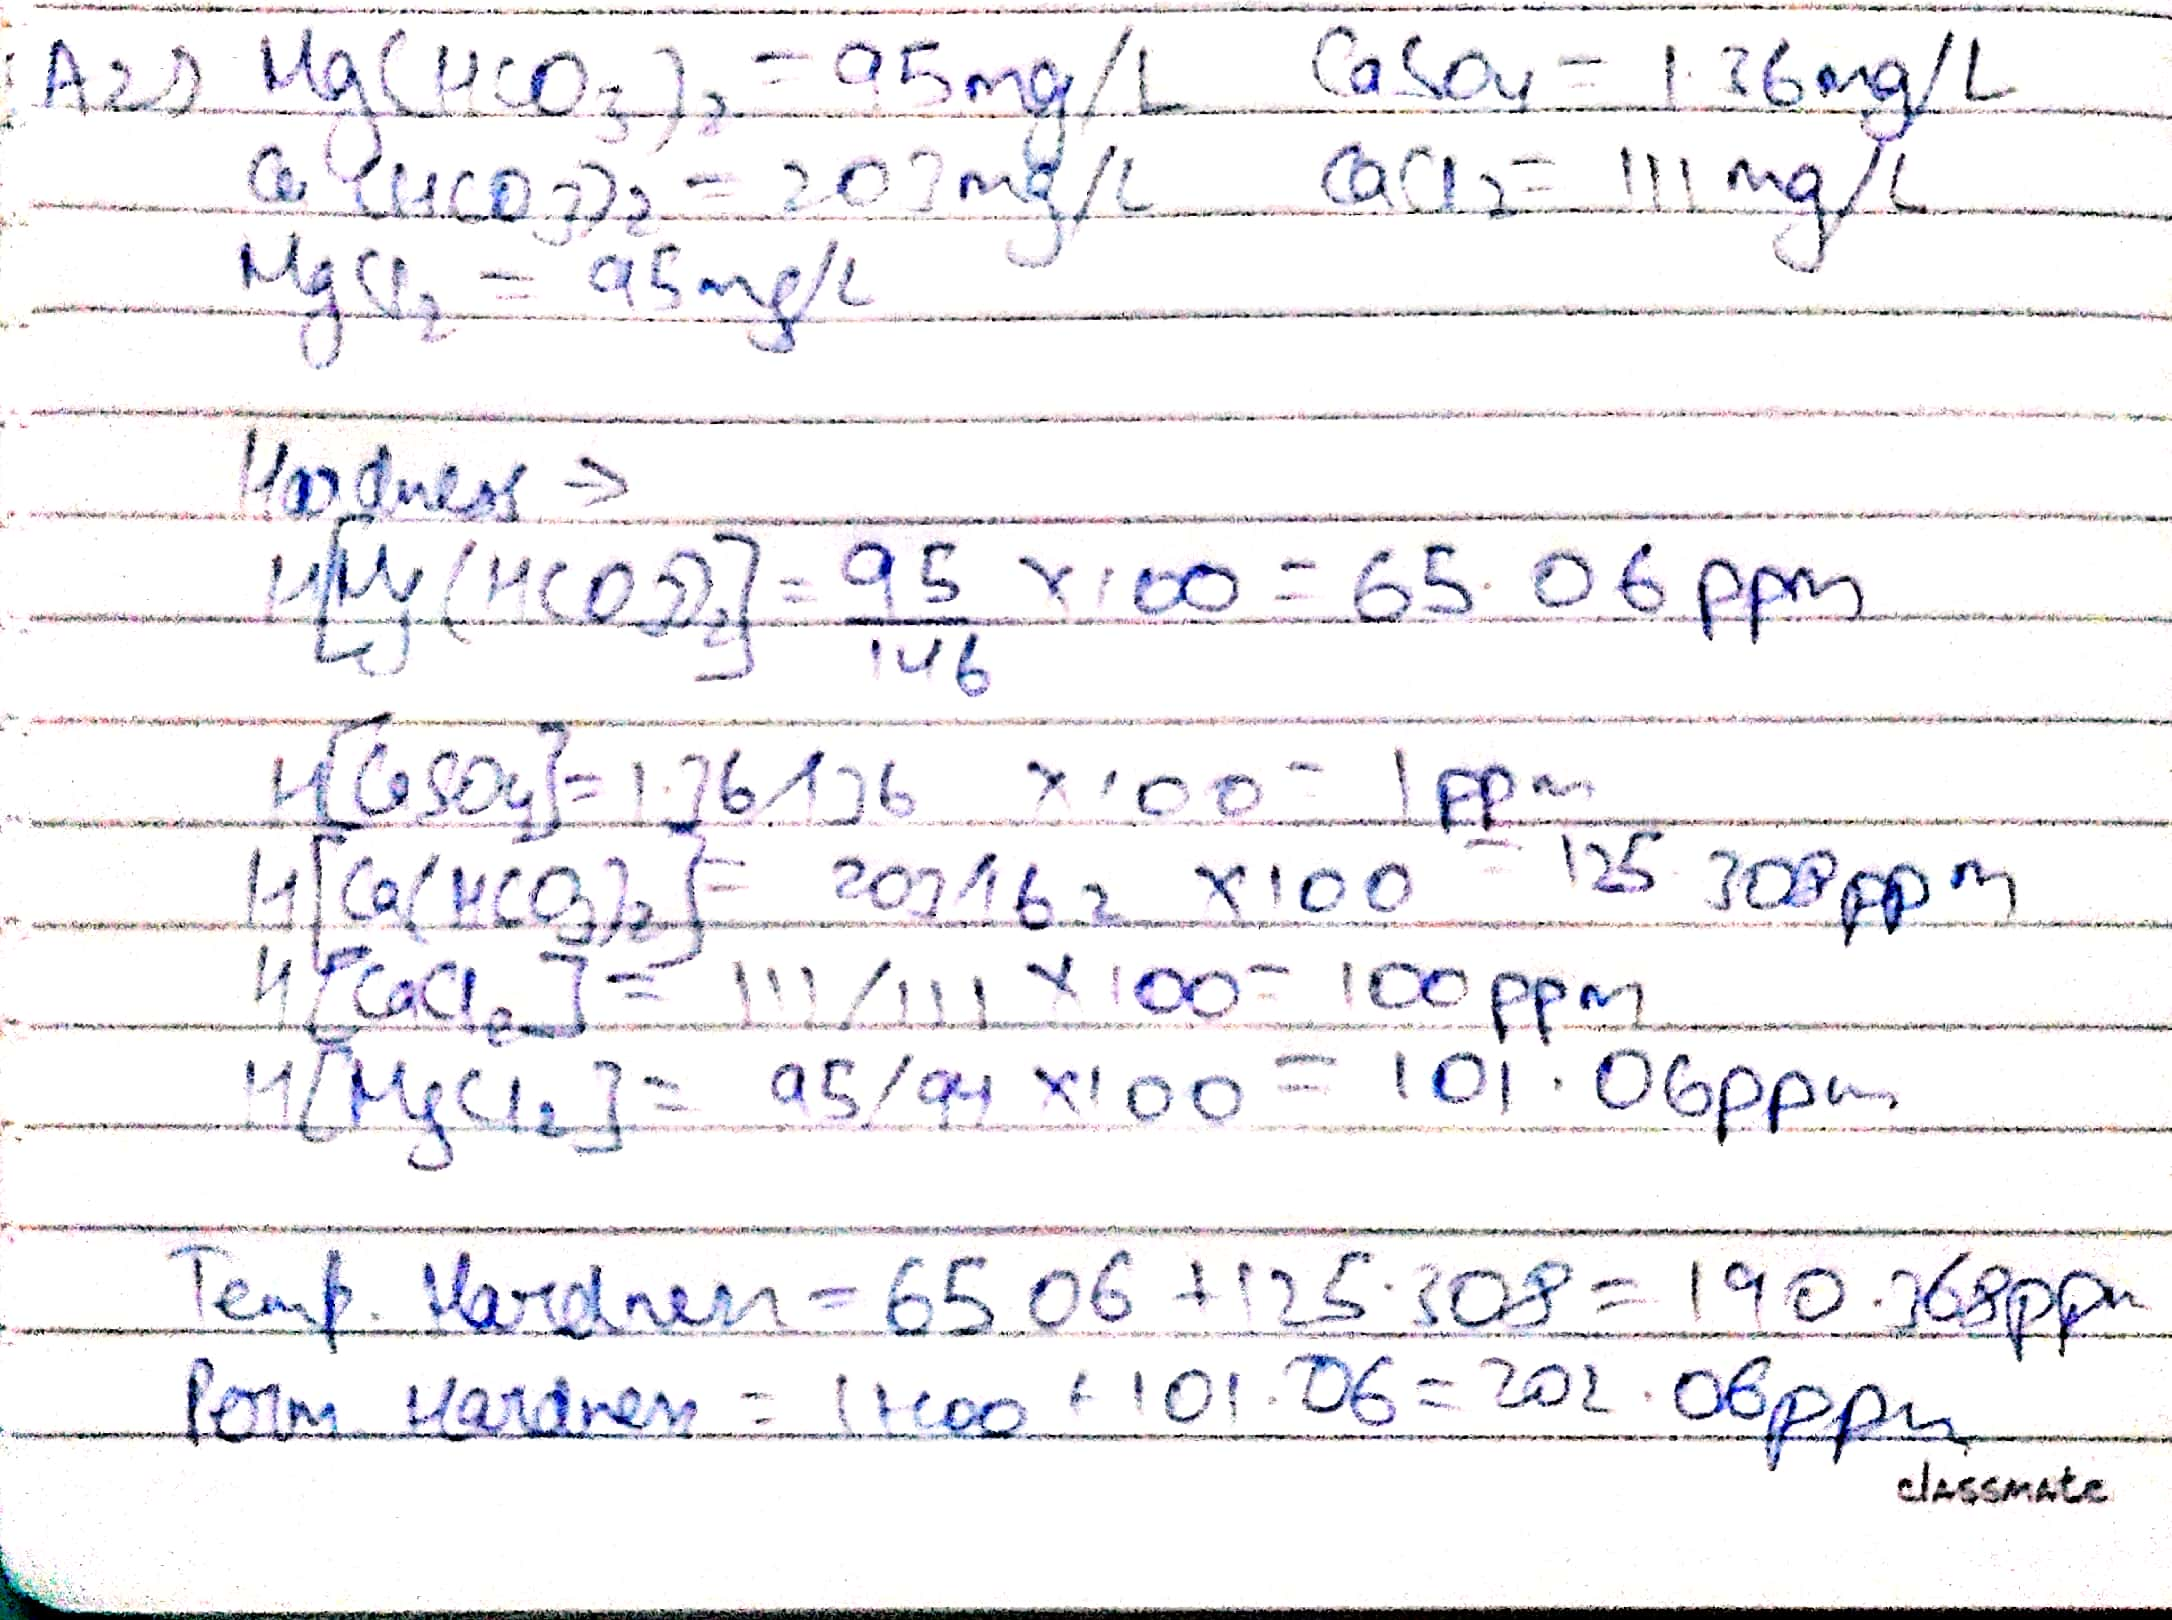 A2) Mg(HCO3)2 = 95mg/L CaSO4 = 1.36mg/L
Ca(HCO3)2 = 203mg/L CaCl2 = 111mg/L
MgCl2 = 95mg/L
Hardness →
H[Mg(HCO3)2] = 95/146 ×100 = 65.06 ppm
H[CaSO4] = 1.36/136 ×100 = 1ppm
H[Ca(HCO3)2] = 203/162 ×100 = 125.308ppm
H[CaCl2] = 111/111 ×100 = 100ppm
H[MgCl2] = 95/94 ×100 = 101.06ppm
Temp. Hardness = 65.06 + 125.308 = 190.368ppm
Perm Hardness = 1+100 + 101.06 = 202.06ppm
classmate